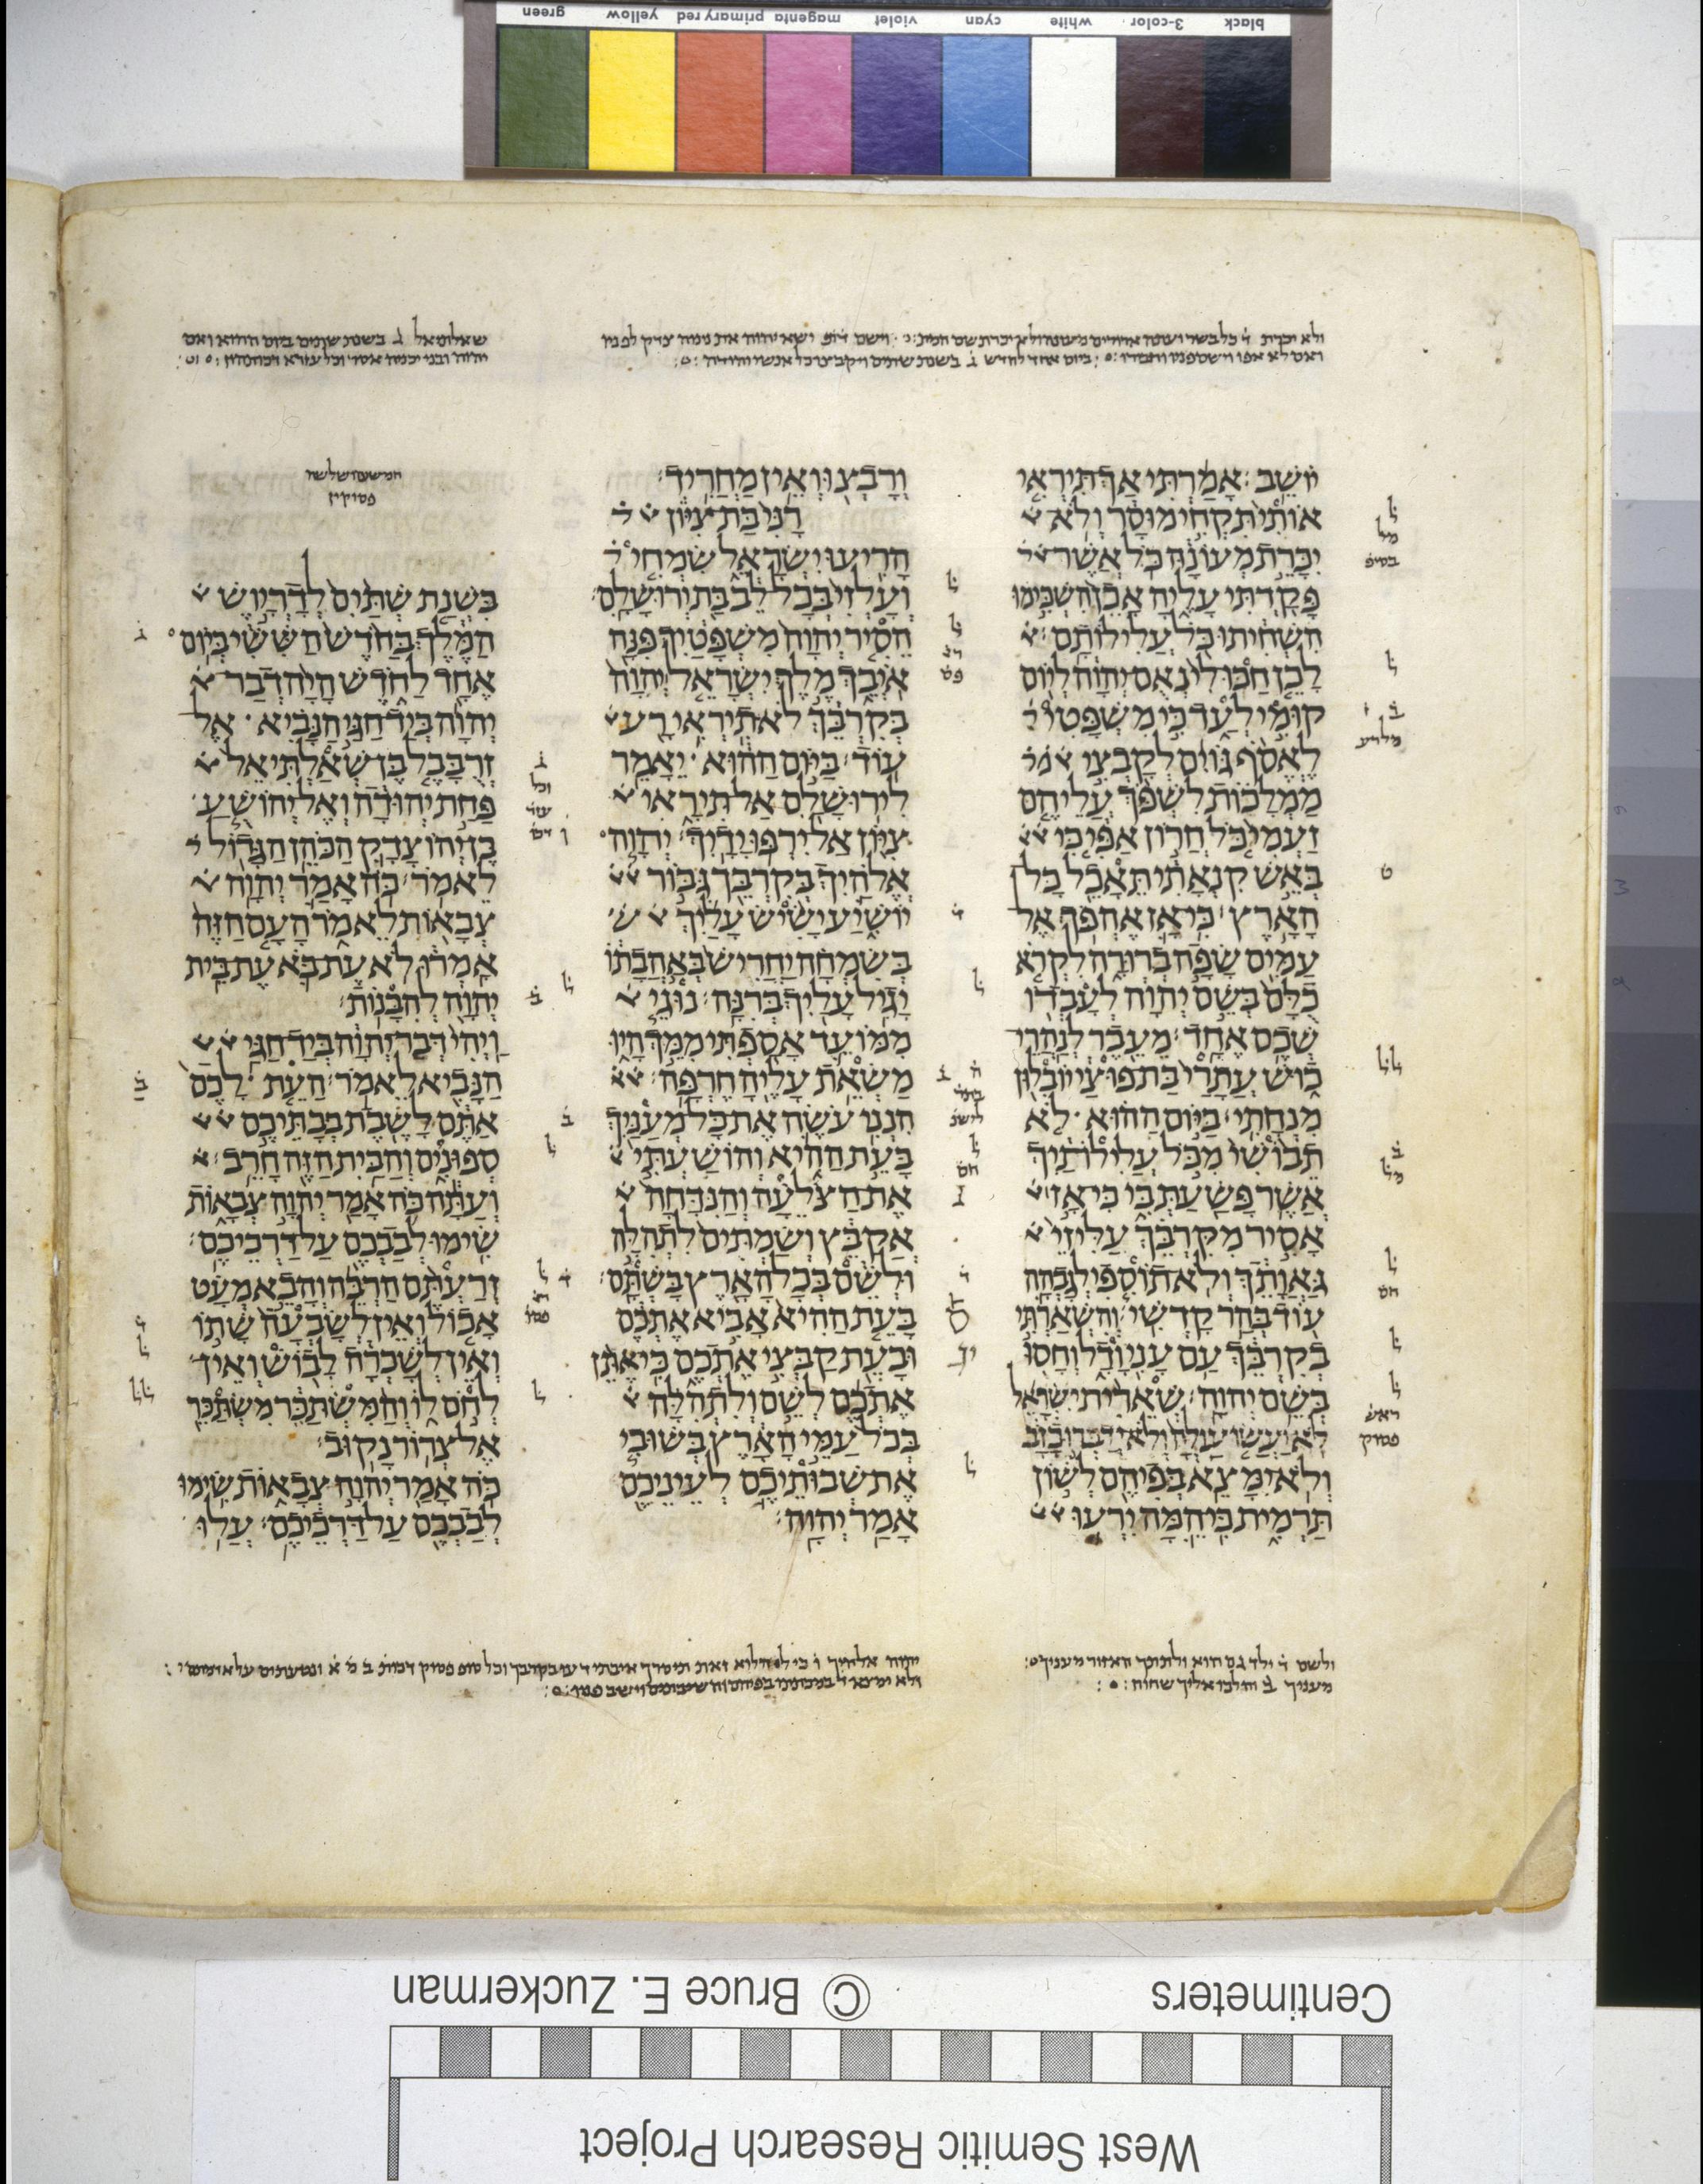 green yellow primary red magenta violet cyan white 3-color black
יושב׃ אמרתי אך תיראי
אותי תקחי מוסר ולא
יכרת מעונה כל אשר
פקדתי עליה אכן השכימו
השחיתו כל עלילותם׃
לכן חכו לי נאם יהוה ליום
קומי לעד כי משפטי
לאסף גוים לקבצי
ממלכות לשפך עליהם
זעמי כל חרון אפי כי
באש קנאתי תאכל כל
הארץ׃ כי אז אהפך אל
עמים שפה ברורה לקרא
כלם בשם יהוה לעבדו
שכם אחד׃ מעבר לנהרי
כוש עתרי בת פוצי יובלון
מנחתי׃ ביום ההוא לא
תבושי מכל עלילתיך
אשר פשעת בי כי אז
אסיר מקרבך עליזי
גאותך ולא תוספי לגבהה
עוד בהר קדשי׃ והשארתי
בקרבך עם עני ודל וחסו
בשם יהוה׃ שארית ישראל
לא יעשו עולה ולא ידברו כזב
ולא ימצא בפיהם לשון
תרמית כי המה ירעו
ורבצו ואין מחריד׃
רני בת ציון
הריעו ישראל שמחי
ועלזי בכל לב בת ירושלם׃
הסיר יהוה משפטיך פנה
איבך מלך ישראל יהוה
בקרבך לא תיראי רע
עוד׃ ביום ההוא יאמר
לירושלם אל תיראי
ציון אל ירפו ידיך׃ יהוה
אלהיך בקרבך גבור
יושיע ישיש עליך
בשמחה יחריש באהבתו
יגיל עליך ברנה׃ נוגי
ממועד אספתי ממך היו
משאת עליה חרפה׃
הנני עשה את כל מעניך
בעת ההיא והושעתי
את הצלעה והנדחה
אקבץ ושמתים לתהלה
ולשם בכל הארץ בשתם׃
בעת ההיא אביא אתכם
ובעת קבצי אתכם כי אתן
אתכם לשם ולתהלה
בכל עמי הארץ בשובי
את שבותיכם לעיניכם
אמר יהוה׃
חמשים ושלשה
פסוקין
בשנת שתים לדריוש
המלך בחדש הששי ביום
אחד לחדש היה דבר
יהוה ביד חגי הנביא אל
זרבבל בן שאלתיאל
פחת יהודה ואל יהושע
בן יהוצדק הכהן הגדול
לאמר׃ כה אמר יהוה
צבאות לאמר העם הזה
אמרו לא עת בא עת בית
יהוה להבנות׃
ויהי דבר יהוה ביד חגי
הנביא לאמר׃ העת לכם
אתם לשבת בבתיכם
ספונים והבית הזה חרב׃
ועתה כה אמר יהוה צבאות
שימו לבבכם על דרכיכם׃
זרעתם הרבה והבא מעט
אכול ואין לשבעה שתו
ואין לשכרה לבוש ואין
לחם לו והמשתכר משתכר
אל צרור נקוב׃
כה אמר יהוה צבאות שימו
לבבכם על דרכיכם׃ עלו
© Bruce E. Zuckerman
Centimeters
West Semitic Research Project